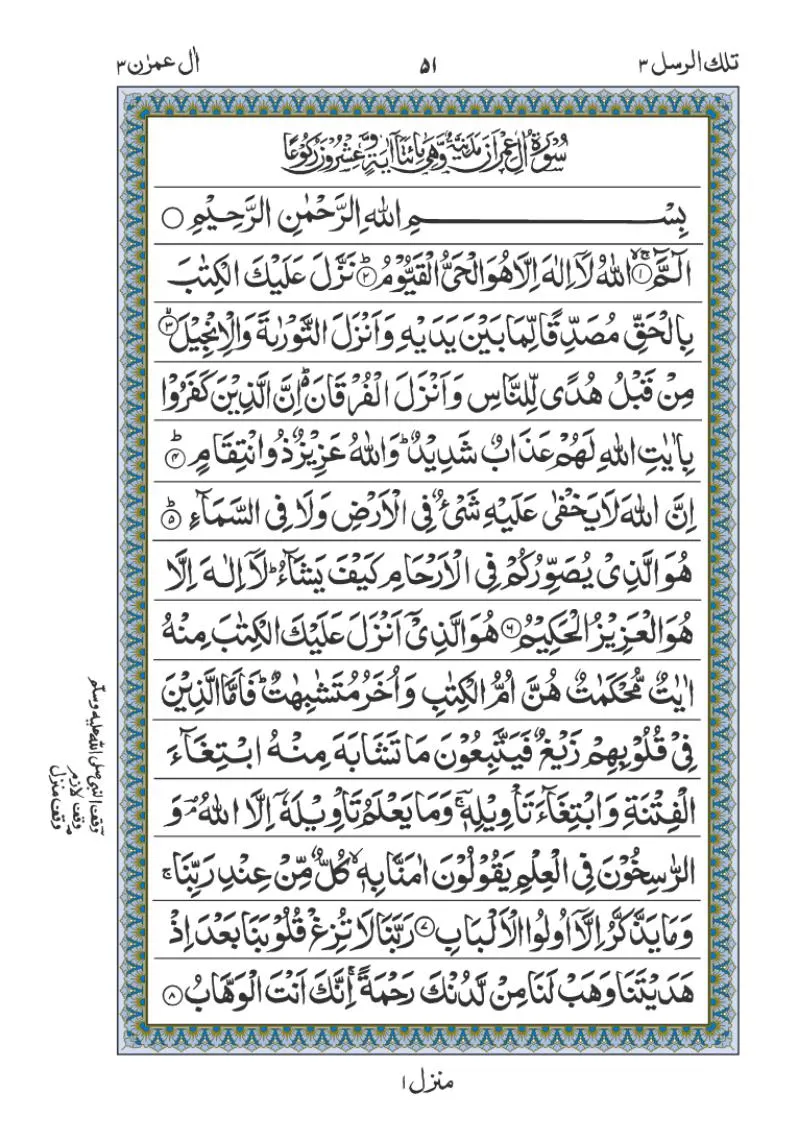 تلك الرسل ٣
٥١
اٰل عمرٰن ٣
سُوْرَةُ اٰلِ عِمْرٰنَ مَدَنِيَّةٌ وَّهِيَ مِائَتَا اٰيَةٍ وَّعِشْرُوْنَ رُكُوْعًا
بِسْمِ اللهِ الرَّحْمٰنِ الرَّحِيْمِ ○
الٓمّٓ ۙ﴿١﴾ اللهُ لَاۤ اِلٰهَ اِلَّا هُوَ الْحَيُّ الْقَيُّوْمُ ؕ﴿٢﴾ نَزَّلَ عَلَيْكَ الْكِتٰبَ
بِالْحَقِّ مُصَدِّقًا لِّمَا بَيْنَ يَدَيْهِ وَاَنْزَلَ التَّوْرٰىةَ وَالْاِنْجِيْلَ ۙ﴿٣﴾
مِنْ قَبْلُ هُدًى لِّلنَّاسِ وَاَنْزَلَ الْفُرْقَانَ ؕ۬ اِنَّ الَّذِيْنَ كَفَرُوْا
بِاٰيٰتِ اللهِ لَهُمْ عَذَابٌ شَدِيْدٌ ؕ وَاللهُ عَزِيْزٌ ذُو انْتِقَامٍ ؕ﴿٤﴾
اِنَّ اللهَ لَا يَخْفٰى عَلَيْهِ شَيْءٌ فِي الْاَرْضِ وَلَا فِي السَّمَآءِ ؕ﴿٥﴾
هُوَ الَّذِيْ يُصَوِّرُكُمْ فِي الْاَرْحَامِ كَيْفَ يَشَآءُ ؕ لَاۤ اِلٰهَ اِلَّا
هُوَ الْعَزِيْزُ الْحَكِيْمُ ﴿٦﴾ هُوَ الَّذِيْۤ اَنْزَلَ عَلَيْكَ الْكِتٰبَ مِنْهُ
اٰيٰتٌ مُّحْكَمٰتٌ هُنَّ اُمُّ الْكِتٰبِ وَاُخَرُ مُتَشٰبِهٰتٌ ؕ فَاَمَّا الَّذِيْنَ
فِيْ قُلُوْبِهِمْ زَيْغٌ فَيَتَّبِعُوْنَ مَا تَشَابَهَ مِنْهُ ابْتِغَآءَ
الْفِتْنَةِ وَابْتِغَآءَ تَاْوِيْلِهٖ ۚ وَمَا يَعْلَمُ تَاْوِيْلَهٗۤ اِلَّا اللهُ ۘ وَ
الرّٰسِخُوْنَ فِي الْعِلْمِ يَقُوْلُوْنَ اٰمَنَّا بِهٖ ۙ كُلٌّ مِّنْ عِنْدِ رَبِّنَا ۚ
وَمَا يَذَّكَّرُ اِلَّاۤ اُولُوا الْاَلْبَابِ ﴿٧﴾ رَبَّنَا لَا تُزِغْ قُلُوْبَنَا بَعْدَ اِذْ
هَدَيْتَنَا وَهَبْ لَنَا مِنْ لَّدُنْكَ رَحْمَةً ۚ اِنَّكَ اَنْتَ الْوَهَّابُ ﴿٨﴾
وقف النبى صلى الله عليه وسلم
وقف لازم
وقف منزل
منزل ١